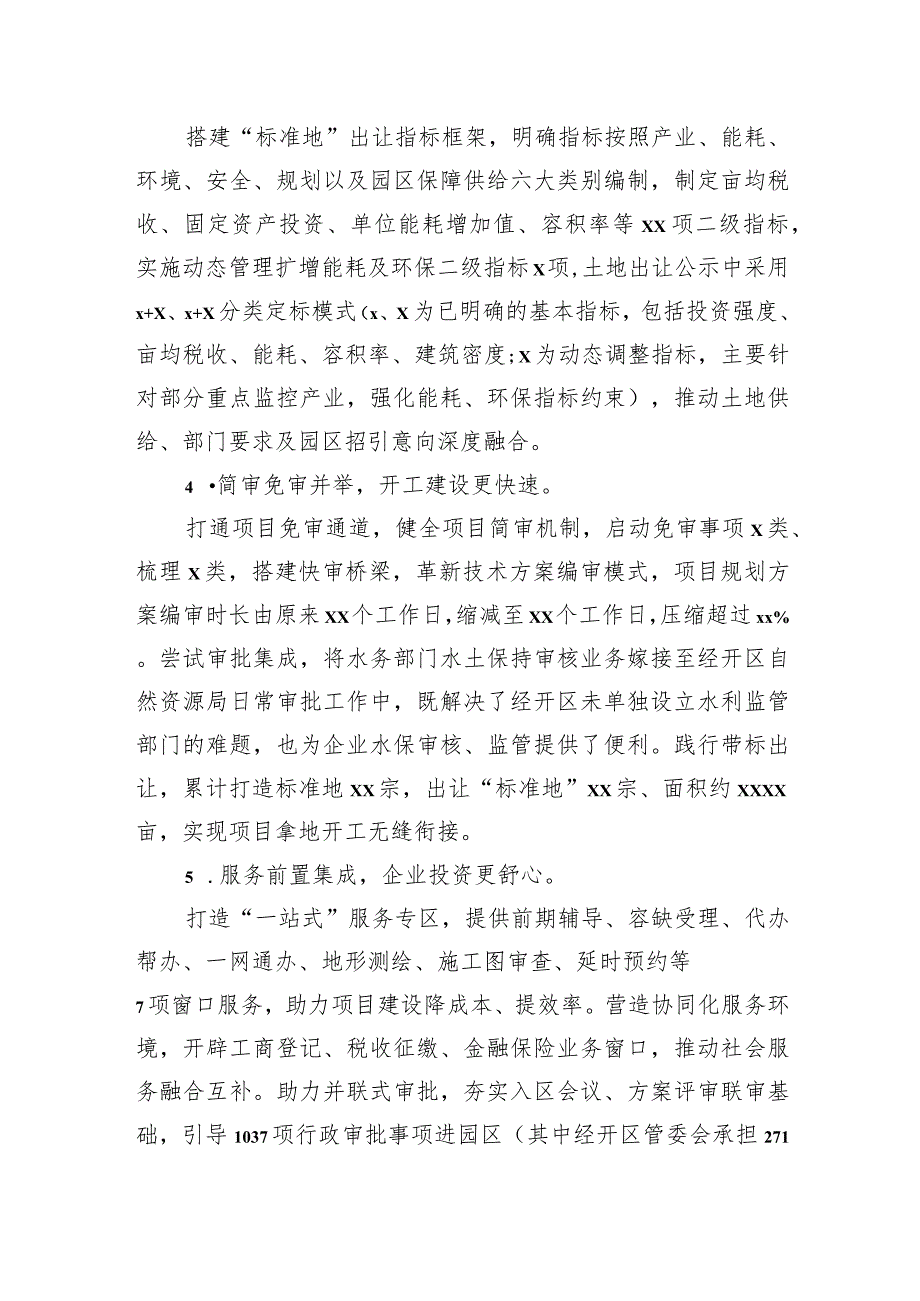 搭建“标准地”出让指标框架，明确指标按照产业、能耗、
环境、安全、规划以及园区保障供给六大类别编制，制定亩均税
收、固定资产投资、单位能耗增加值、容积率等 XX 项二级指标，
实施动态管理扩增能耗及环保二级指标X项,土地出让公示中采用
x+X、x+X分类定标模式（x、X为已明确的基本指标，包括投资强度、
亩均税收、能耗、容积率、建筑密度;X为动态调整指标，主要针
对部分重点监控产业，强化能耗、环保指标约束），推动土地供
给、部门要求及园区招引意向深度融合。
4 •简审免审并举，开工建设更快速。
打通项目免审通道，健全项目简审机制，启动免审事项X类、
梳理X类，搭建快审桥梁，革新技术方案编审模式，项目规划方
案编审时长由原来XX个工作日,缩减至XX个工作日,压缩超过xx%
。尝试审批集成，将水务部门水土保持审核业务嫁接至经开区自
然资源局日常审批工作中，既解决了经开区未单独设立水利监管
部门的难题，也为企业水保审核、监管提供了便利。践行带标出
让，累计打造标准地XX宗，出让“标准地”XX宗、面积约XXXX
亩，实现项目拿地开工无缝衔接。
5 .服务前置集成，企业投资更舒心。
打造“一站式”服务专区，提供前期辅导、容缺受理、代办
帮办、一网通办、地形测绘、施工图审查、延时预约等
7项窗口服务，助力项目建设降成本、提效率。营造协同化服务环
境，开辟工商登记、税收征缴、金融保险业务窗口，推动社会服
务融合互补。助力并联式审批，夯实入区会议、方案评审联审基
础，引导1037项行政审批事项进园区（其中经开区管委会承担271